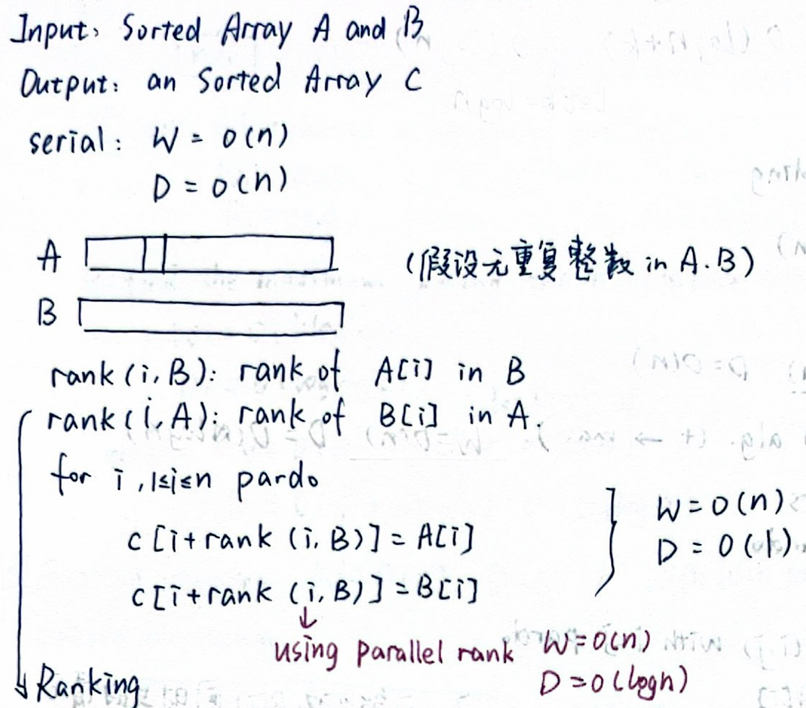 Input: Sorted Array A and B
Output: an Sorted Array C
serial: W = O(n)
D = O(n)
A
(假设无重复整数 in A.B)
B
rank(i,B): rank of A[i] in B
rank(i,A): rank of B[i] in A.
for i, 1≤i≤n pardo
C[i+rank (i,B)] = A[i]
C[i+rank (i,B)] = B[i]
W = O(n)
D = O(1)
using parallel rank W=O(n)
D=O(logn)
Ranking